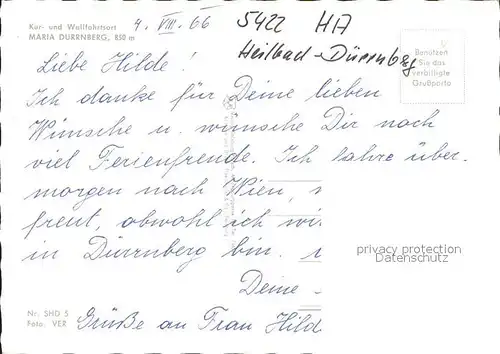 Kur- und Wallfahrtsort
MARIA DÜRRNBERG, 850 m
4. VIII. 66
5422 HA
Heilbad-Dürrnberg
Benützen
Sie das
verbilligte
Grußporto
Liebe Hilde!
Ich danke für Deine lieben
Wünsche u. wünsche Dir noch
viel Ferienfreude. Ich fahre über-
morgen nach Wien,
freut, obwohl ich
in Dürrnberg bin.
Deine
Grüße an Frau Hild
Nr. SHD 5
Foto. VER
privacy protection
Datenschutz